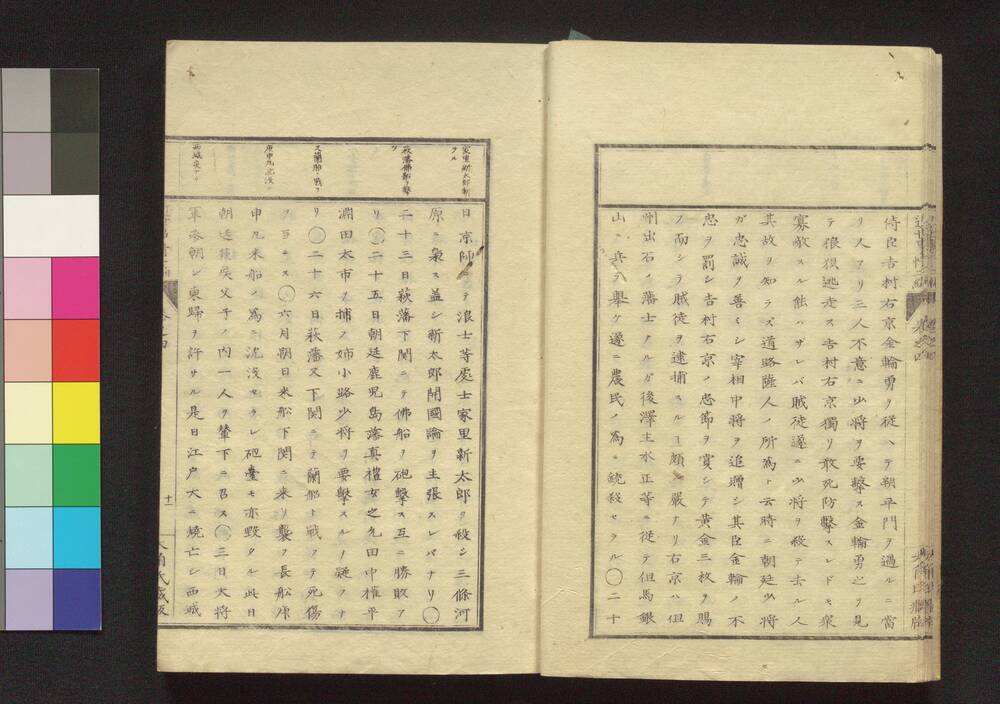 侍臣吉村右京金輪勇ヲ従ヘテ朔平門ヲ過ルニ當
リ人アリ三人不意ニ少将ヲ要撃ス金輪勇之ヲ見
テ狼狽逃走ス吉村右京獨リ敢死防撃スレドモ衆
寡敵スル能ハザレバ賊徒遂ニ少将ヲ殺テ去ル人
其故ヲ知ラズ道路薩人ノ所為ト云時ニ朝廷少将
ガ忠誠ヲ善ミシ宰相中将ヲ追贈シ其臣金輪ノ不
忠ヲ罰シ吉村右京ノ忠節ヲ賞シテ黄金三枚ヲ賜
フ而シテ賊徒ヲ逮捕スルヿ頗ル嚴ナリ右京ハ但
州出石ノ藩士ナルガ後澤主水正等ニ従テ但馬銀
山ニ兵ヲ舉ケ遂ニ農民ノ為ニ銃殺セラル〇二十
家里新太郎斬
ラル
萩藩佛船ヲ撃
ツ
又蘭船ト戰フ
庚申丸沈没ス
西城炎亡ス
日京師ニテ浪士等處士家里新太郎ヲ殺シ三條河
原ニ梟ス蓋シ新太郎開國論ヲ主張スレバナリ〇
二十三日萩藩下関ニテ佛船ヲ砲撃ス互ニ勝敗ア
リ〇二十五日朝廷鹿児島藩真禮女之允田中権平
淵田太市ヲ捕フ姉小路少将ヲ要撃スルノ疑アナ
リ〇二十六日萩藩又下関ニテ蘭船ト戰フテ死傷
ヲ互ニス〇六月朔日米船下関ニ来リ襲フ長船庚
申丸米船ノ為ニ沈没セラレ砲臺モ亦毀タル此日
朝廷藤侯父子ノ内一人ヲ輦下ニ召ス〇三日大将
軍参朝シ東歸ヲ許サル是日江戸大ニ焼亡シ西城
十一